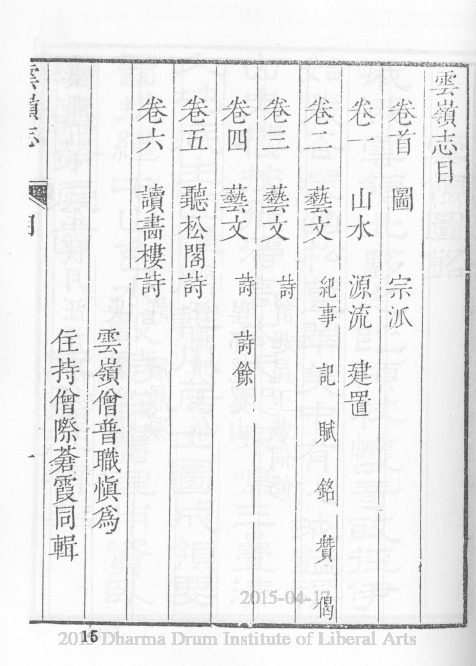 雲嶺志目
卷首 圖 宗派
卷一 山水 源流 建置
卷二 藝文 紀事 記 賦 銘 贊 偈
卷三 藝文 詩
卷四 藝文 詩 詩餘
卷五 聽松閣詩
卷六 讀書樓詩
雲嶺僧普職愼為
住持僧際蒼霞同輯
雲嶺志 目 一
2015-04-17
15
2015 Dharma Drum Institute of Liberal Arts